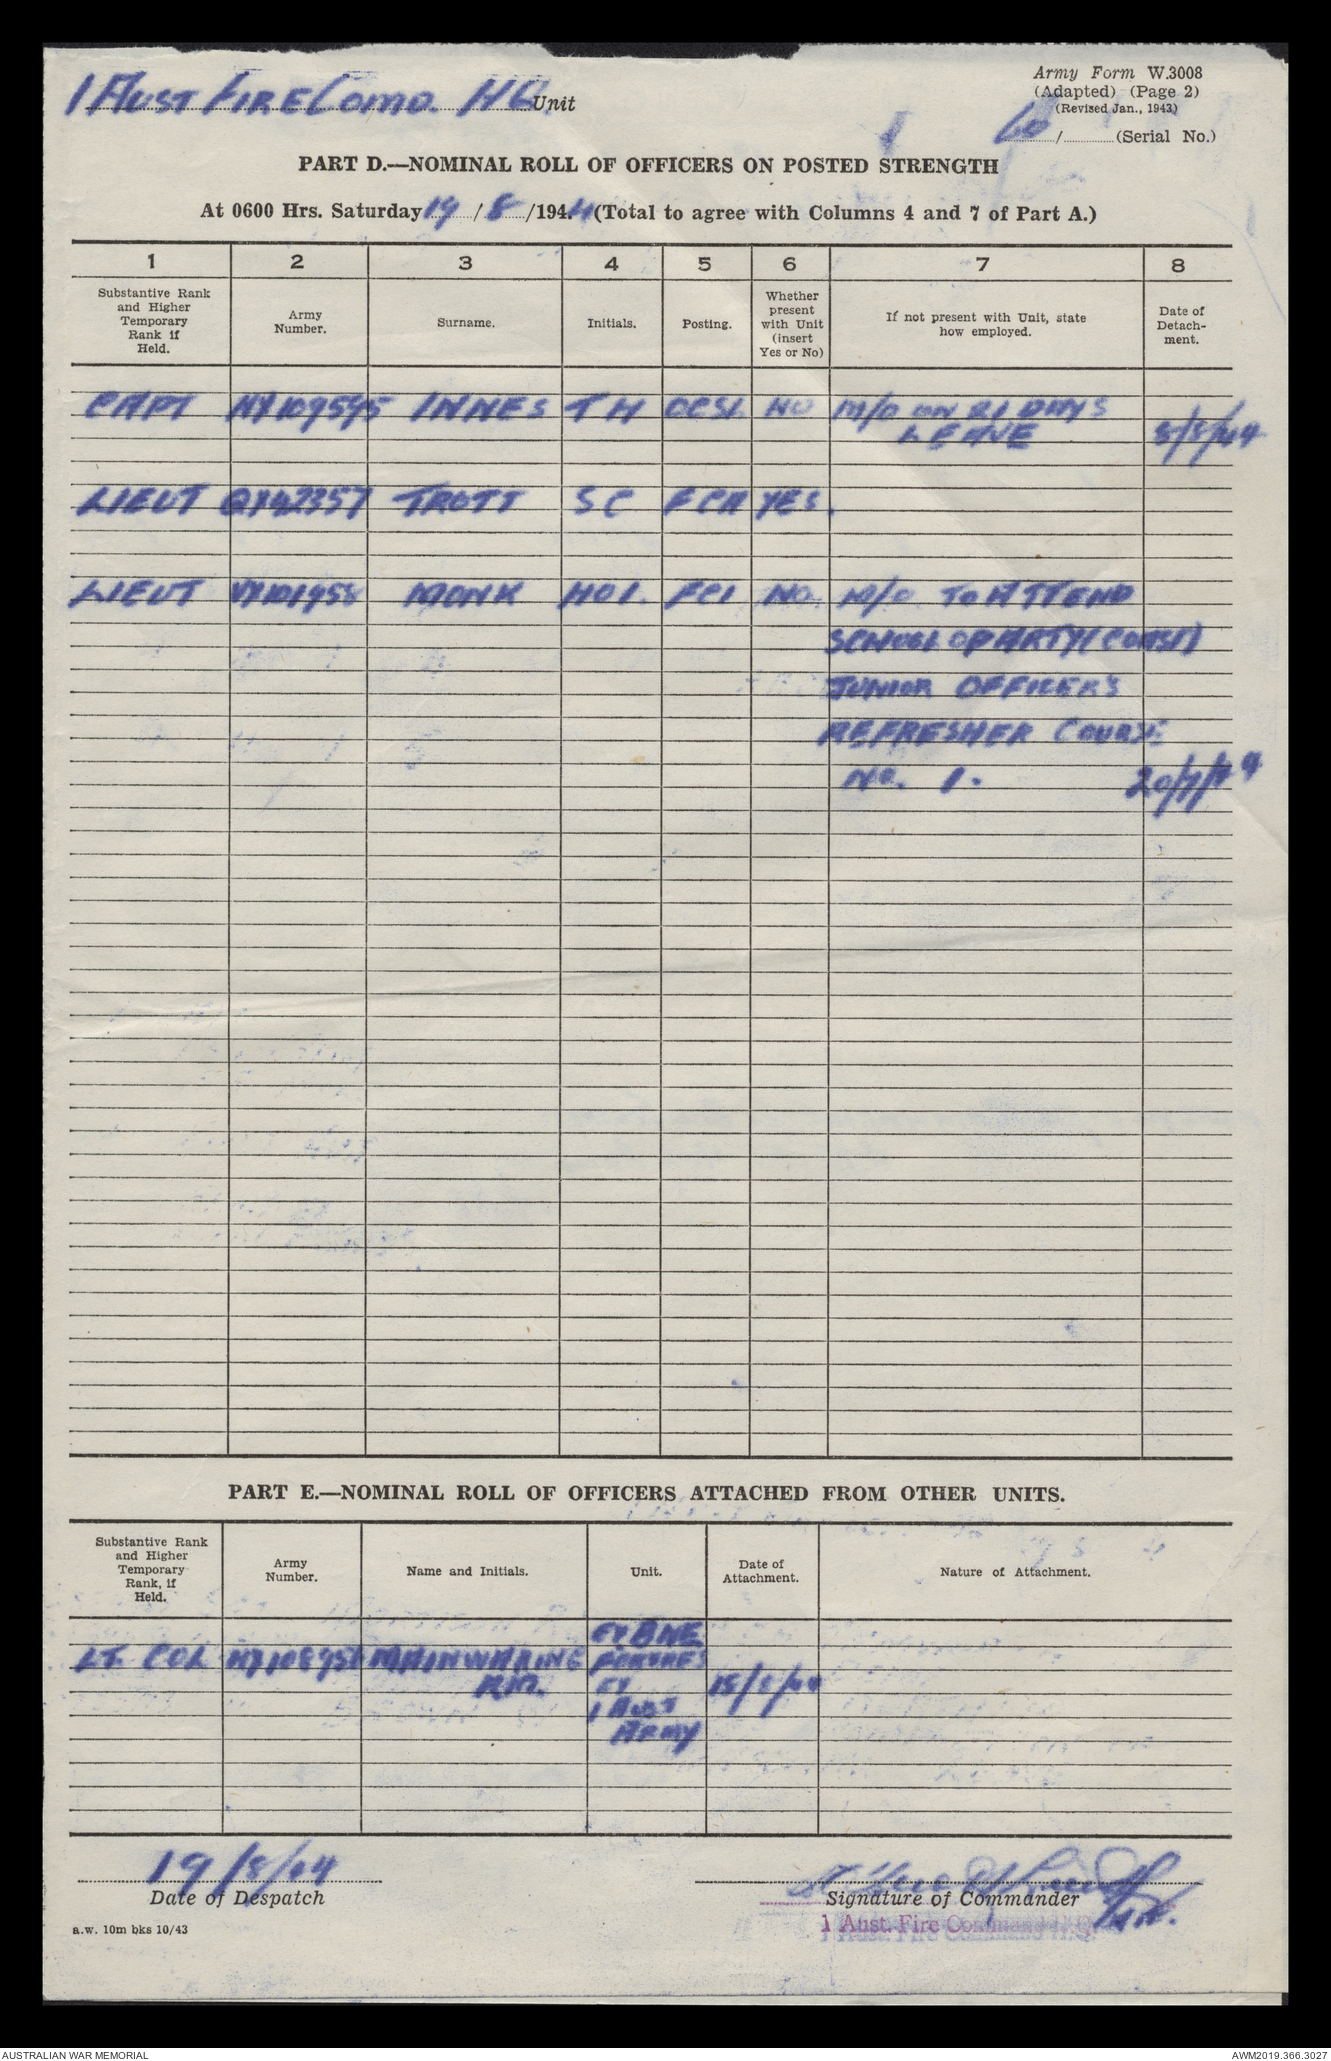 1 Aust Fire Comd. HQ. Unit
Army Form W.3008
(Adapted) (Page 2)
(Revised Jan., 1943)
60 / (Serial No.)
PART D.—NOMINAL ROLL OF OFFICERS ON POSTED STRENGTH
At 0600 Hrs. Saturday 19 / 8 /1944 (Total to agree with Columns 4 and 7 of Part A.)
1 2 3 4 5 6 7 8
Substantive Rank and Higher Temporary Rank if Held. Army Number. Surname. Initials. Posting. Whether present with Unit (insert Yes or No) If not present with Unit, state how employed. Date of Detachment.
CAPT NX109595 INNES TH OCSL NO M/O ON 21 DAYS
LEAVE 8/8/44
LIEUT QX42357 TROTT SC FCA YES.
LIEUT VX101958 MONK HOI. FCI NO. M/O TO ATTEND
SCHOOL OF ARTY (COAST)
JUNIOR OFFICERS
REFRESHER COURSE
No. 1. 20/7/44
PART E.—NOMINAL ROLL OF OFFICERS ATTACHED FROM OTHER UNITS.
Substantive Rank and Higher Temporary Rank, if Held. Army Number. Name and Initials. Unit. Date of Attachment. Nature of Attachment.
BNE
LT. COL MAINWARING
R.M. 15/8/44
1 AUST
ARMY
19/8/44
Date of Despatch
Signature of Commander
1 Aust. Fire Command H.Q.
a.w. 10m bks 10/43
AUSTRALIAN WAR MEMORIAL
AWM2019.366.3027